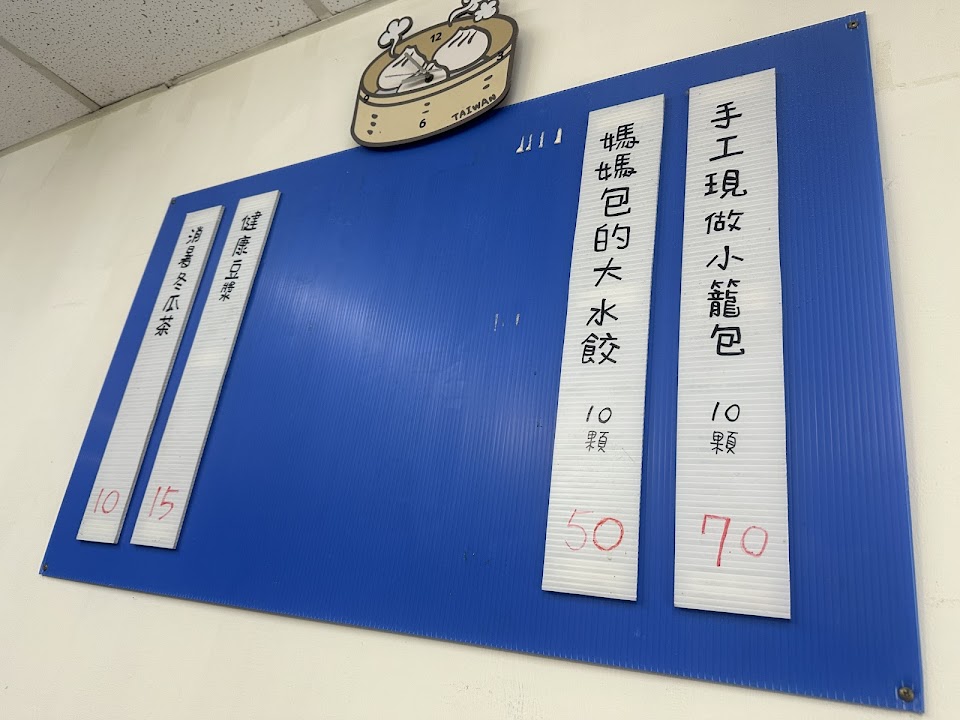 12
3
6
TAIWAN
手工現做小籠包
10顆
70
媽媽包的大水餃
10顆
50
健康豆漿
15
消暑冬瓜茶
10